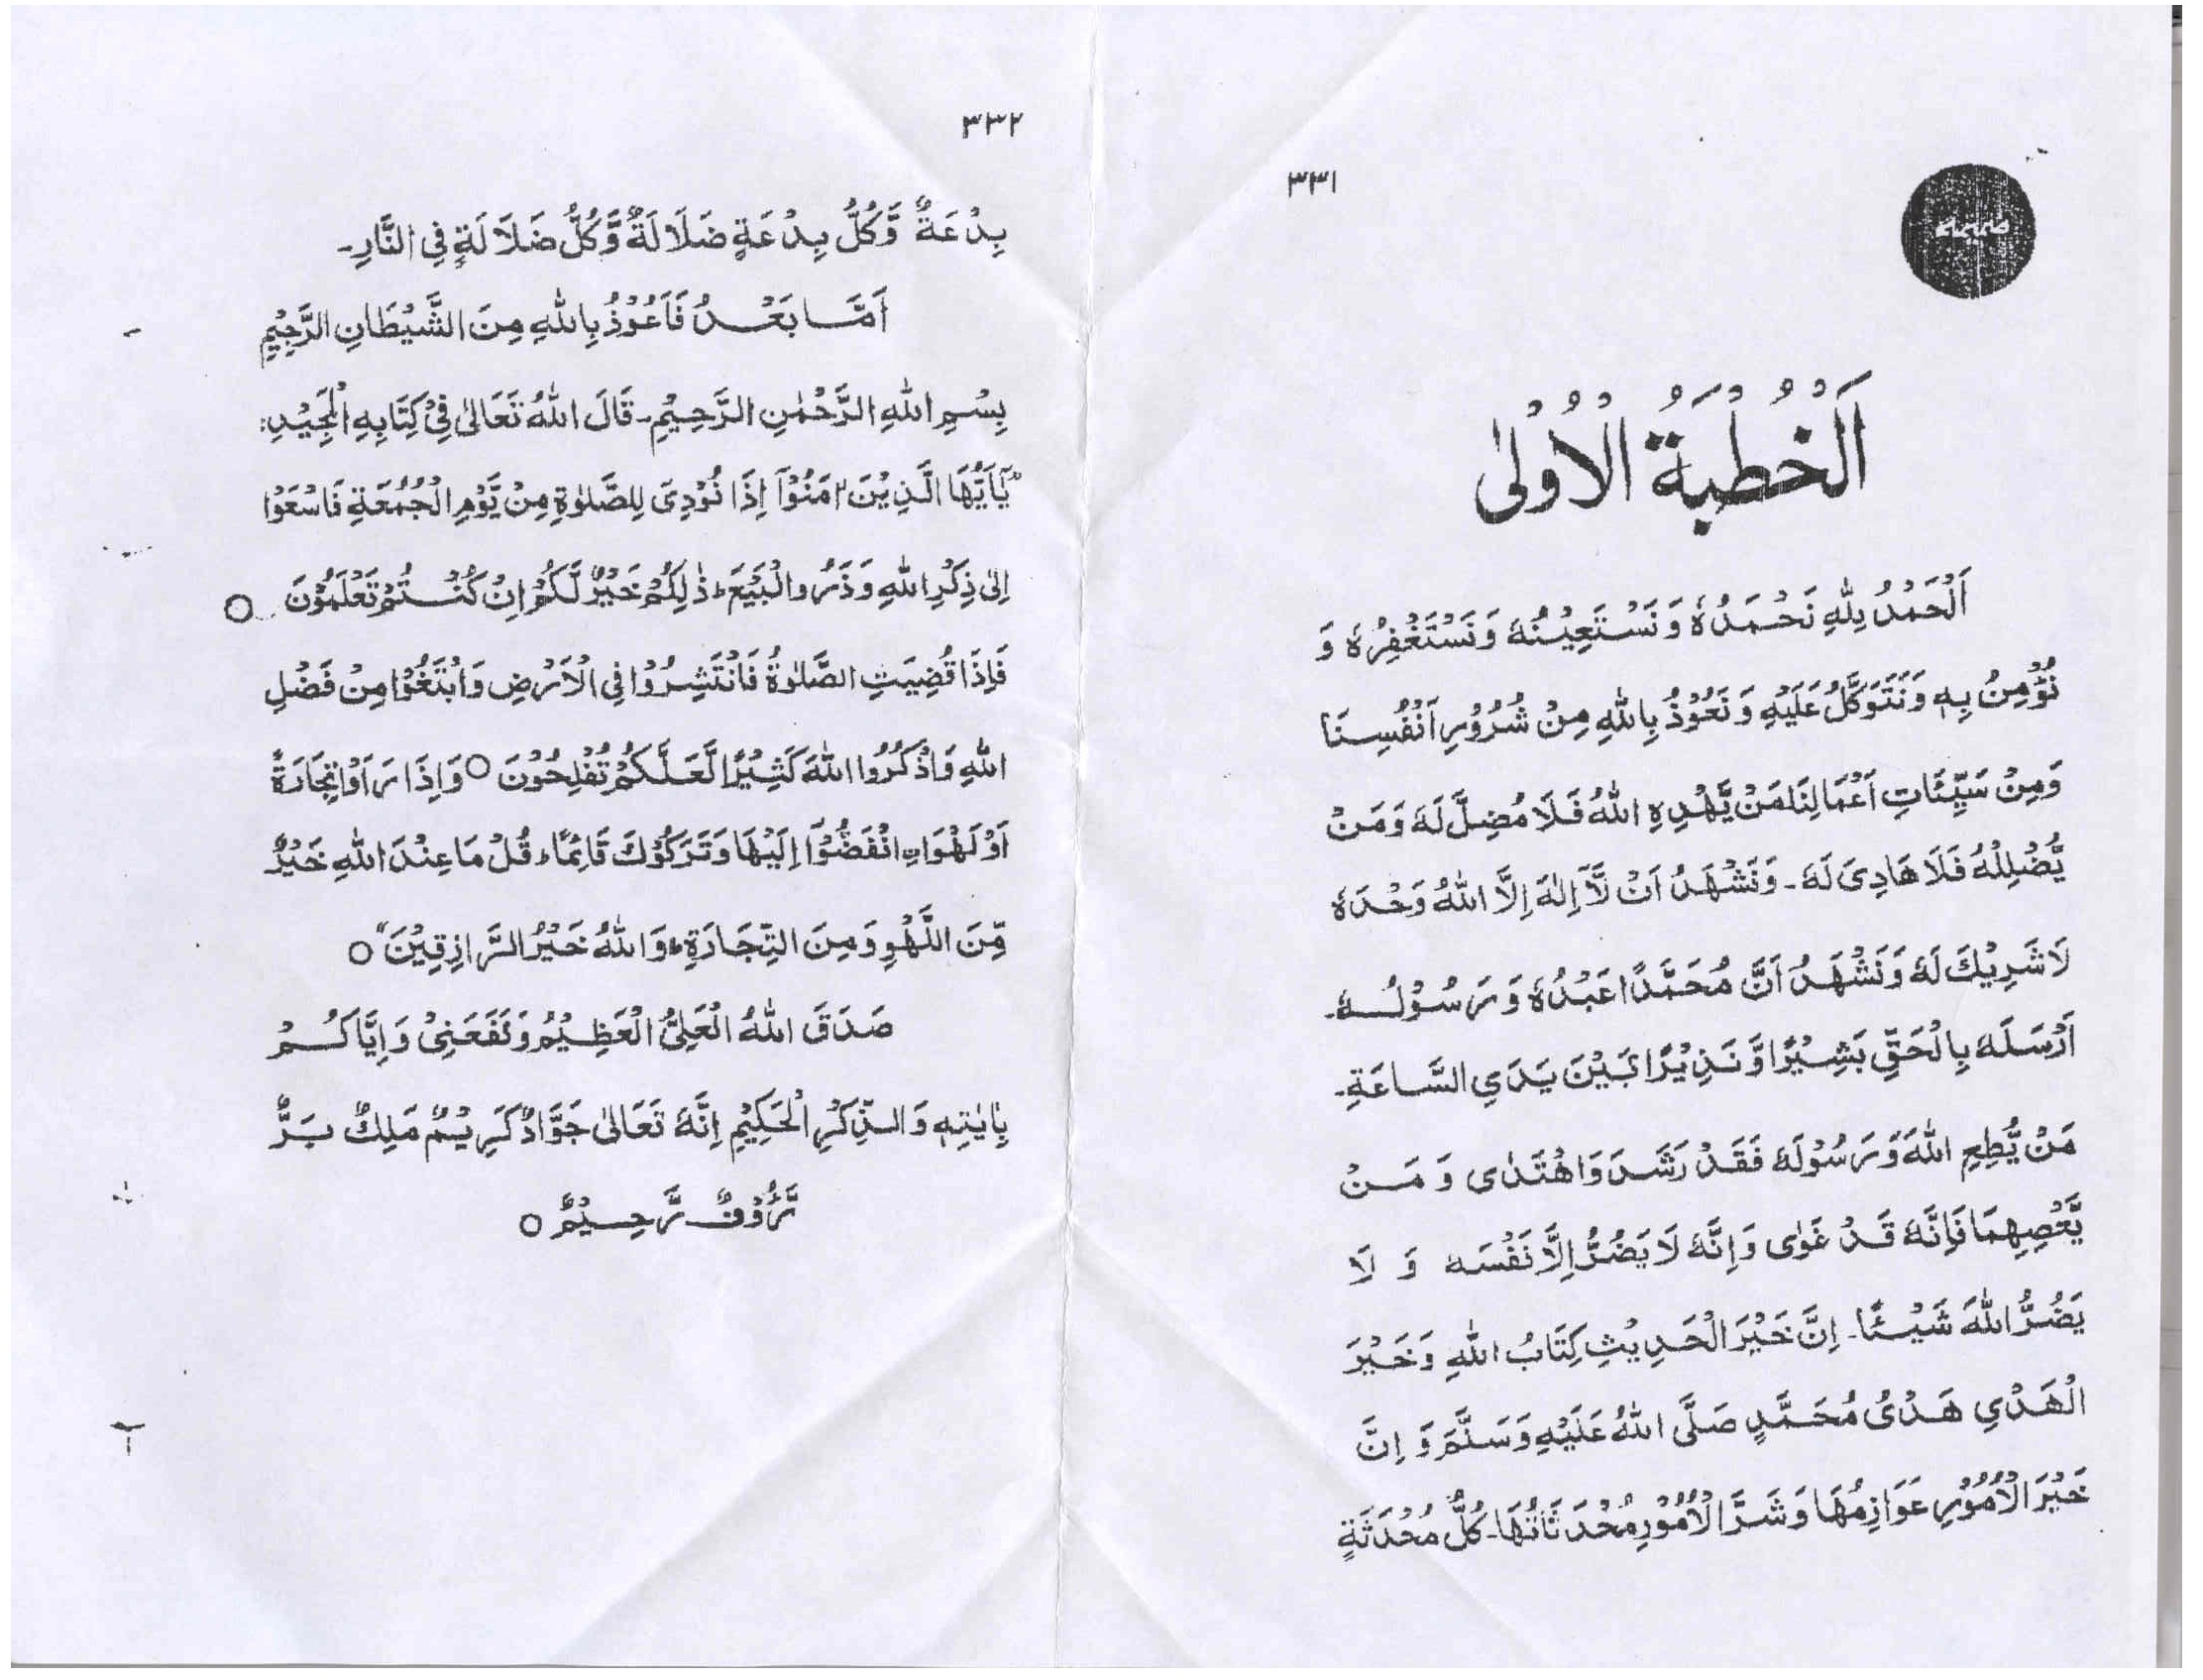 ٣٣١
ضمیمہ
اَلْخُطْبَةُ الْاُوْلٰى
اَلْحَمْدُ لِلّٰهِ نَحْمَدُهٗ وَنَسْتَعِيْنُهٗ وَنَسْتَغْفِرُهٗ وَ
نُؤْمِنُ بِهٖ وَنَتَوَكَّلُ عَلَيْهِ وَنَعُوْذُ بِاللّٰهِ مِنْ شُرُوْرِ اَنْفُسِنَا
وَمِنْ سَيِّئَاتِ اَعْمَالِنَا مَنْ يَّهْدِهِ اللّٰهُ فَلَا مُضِلَّ لَهٗ وَمَنْ
يُّضْلِلْهُ فَلَا هَادِىَ لَهٗ۔ وَنَشْهَدُ اَنْ لَّآ اِلٰهَ اِلَّا اللّٰهُ وَحْدَهٗ
لَا شَرِيْكَ لَهٗ وَنَشْهَدُ اَنَّ مُحَمَّدًا عَبْدُهٗ وَرَسُوْلُهٗ۔
اَرْسَلَهٗ بِالْحَقِّ بَشِيْرًا وَّنَذِيْرًا بَيْنَ يَدَىِ السَّاعَةِ۔
مَنْ يُّطِعِ اللّٰهَ وَرَسُوْلَهٗ فَقَدْ رَشَدَ وَاهْتَدٰى وَ مَنْ
يَّعْصِهِمَا فَاِنَّهٗ قَدْ غَوٰى وَاِنَّهٗ لَا يَضُرُّ اِلَّا نَفْسَهٗ وَ لَا
يَضُرُّ اللّٰهَ شَيْئًا۔ اِنَّ خَيْرَ الْحَدِيْثِ كِتَابُ اللّٰهِ وَخَيْرَ
الْهَدْىِ هَدْىُ مُحَمَّدٍ صَلَّى اللّٰهُ عَلَيْهِ وَسَلَّمَ وَ اِنَّ
خَيْرَ الْاُمُوْرِ عَوَازِمُهَا وَشَرَّ الْاُمُوْرِ مُحْدَثَاتُهَا۔ كُلُّ مُحْدَثَةٍ
٣٣٢
بِدْعَةٌ وَّكُلُّ بِدْعَةٍ ضَلَالَةٌ وَّكُلُّ ضَلَالَةٍ فِى النَّارِ۔
اَمَّا بَعْدُ فَاَعُوْذُ بِاللّٰهِ مِنَ الشَّيْطَانِ الرَّجِيْمِ
بِسْمِ اللّٰهِ الرَّحْمٰنِ الرَّحِيْمِ۔ قَالَ اللّٰهُ تَعَالٰى فِىْ كِتَابِهِ الْمَجِيْدِ:
"يٰٓاَيُّهَا الَّذِيْنَ اٰمَنُوْٓا اِذَا نُوْدِىَ لِلصَّلٰوةِ مِنْ يَّوْمِ الْجُمُعَةِ فَاسْعَوْا
اِلٰى ذِكْرِ اللّٰهِ وَذَرُوا الْبَيْعَ ؕ ذٰلِكُمْ خَيْرٌ لَّكُمْ اِنْ كُنْتُمْ تَعْلَمُوْنَ ○
فَاِذَا قُضِيَتِ الصَّلٰوةُ فَانْتَشِرُوْا فِى الْاَرْضِ وَابْتَغُوْا مِنْ فَضْلِ
اللّٰهِ وَاذْكُرُوا اللّٰهَ كَثِيْرًا لَّعَلَّكُمْ تُفْلِحُوْنَ ○ وَاِذَا رَاَوْا تِجَارَةً
اَوْ لَهْوَا۟ انْفَضُّوْٓا اِلَيْهَا وَتَرَكُوْكَ قَائِمًا ؕ قُلْ مَا عِنْدَ اللّٰهِ خَيْرٌ
مِّنَ اللَّهْوِ وَمِنَ التِّجَارَةِ ؕ وَاللّٰهُ خَيْرُ الرَّازِقِيْنَ" ○
صَدَقَ اللّٰهُ الْعَلِىُّ الْعَظِيْمُ وَنَفَعَنِىْ وَاِيَّاكُمْ
بِاٰيٰتِهٖ وَالذِّكْرِ الْحَكِيْمِ اِنَّهٗ تَعَالٰى جَوَّادٌ كَرِيْمٌ مَلِكٌ بَرٌّ
رَّءُوْفٌ رَّحِيْمٌ ○